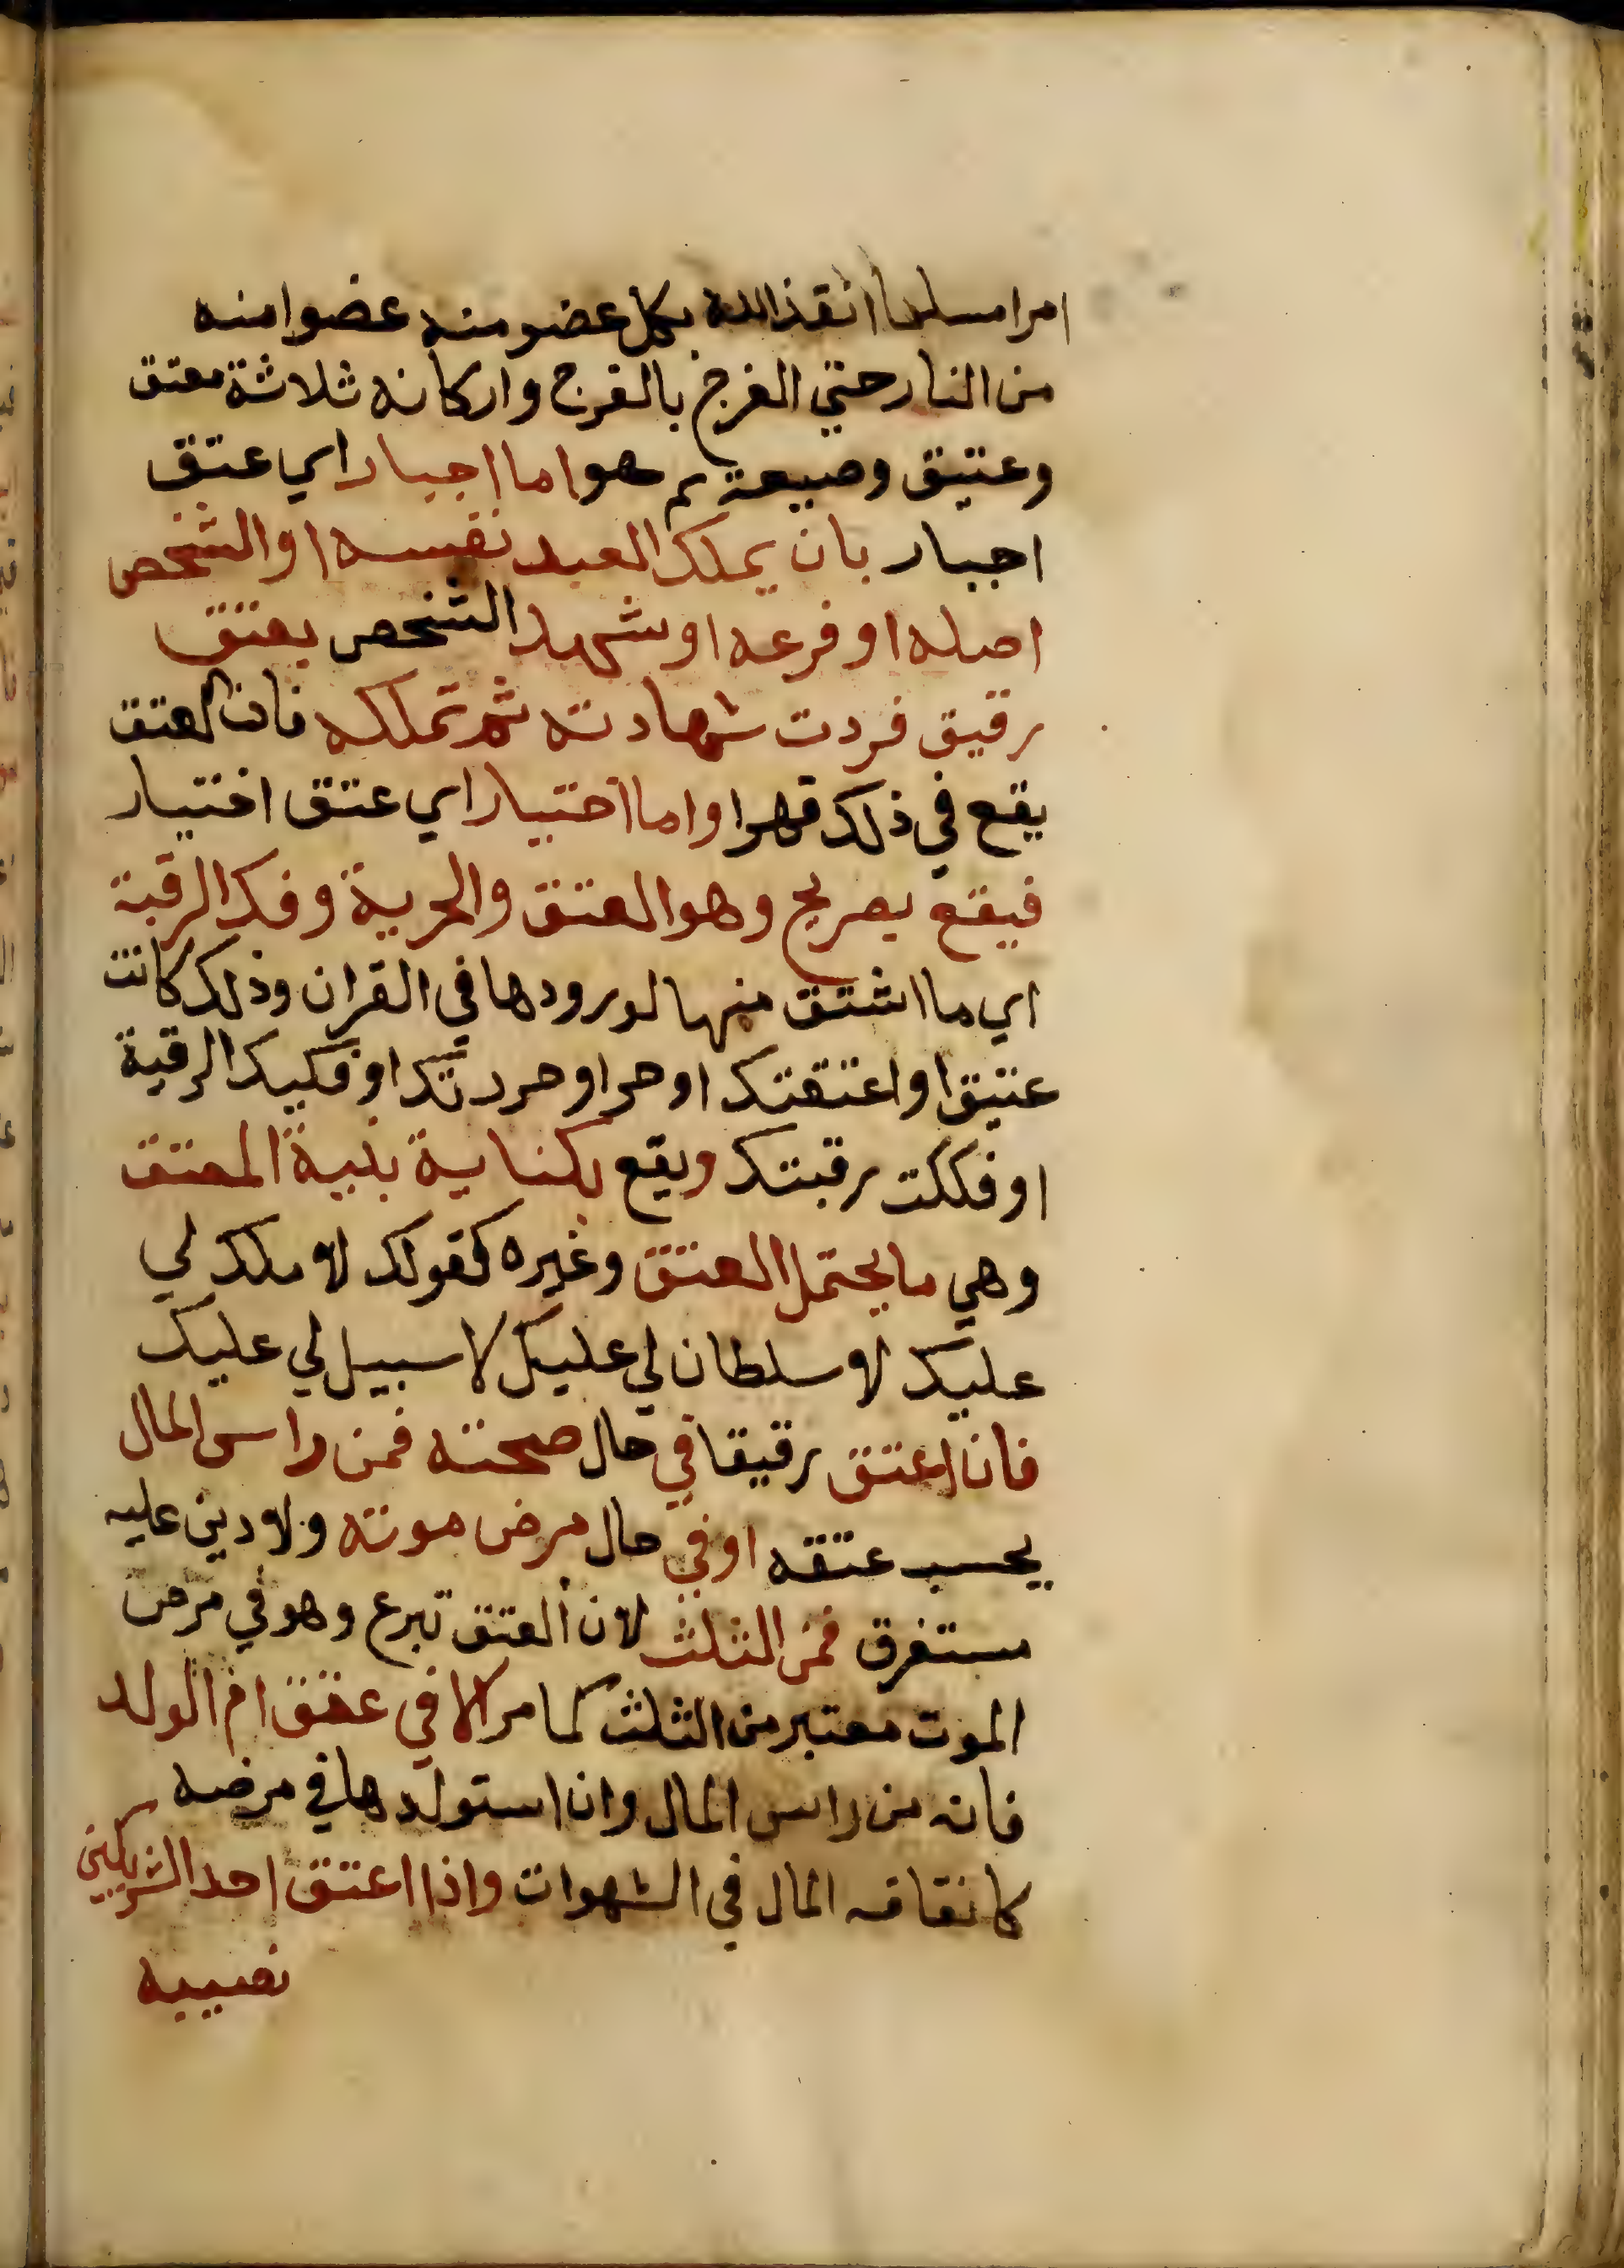 امرا مسلما انقذ الله بكل عضو منه عضوا منه
من النار حتي الفرج بالفرج واركانه ثلاثة معتق
وعتيق وصيغة ثم هو اما اجبار اي عتق
اجبار بان يملك العبد نفسه او الشخص
اصله او فرعه او شهد الشخص بعتق
رقيق فردت شهادته ثم تملكه فان العتق
يقع في ذلك قهرا واما اختيار اي عتق اختيار
فيقع بصريح وهو العتق والحرية وفك الرقبة
اي ما اشتق منها لورودها في القران وذلك كانت
عتيق او اعتقتك او حر او حررتك او فكيك الرقبة
او فككت رقبتك ويقع بكناية بنية المعتق
وهي ما يحتمل العتق وغيره كقولك لا ملك لي
عليك لا سلطان لي عليك لا سبيل لي عليك
فان اعتق رقيقا في حال صحته فمن راس المال
يحسب عتقه او في حال مرض موته ولا دين عليه
مستغرق فمن الثلث لان العتق تبرع وهو في مرض
الموت معتبر من الثلث كما مر الا في عتق ام الولد
فانه من راس المال وان استولدها في مرضه
كانفاقه المال في الشهوات واذا اعتق احد الشريكين
نصيبه